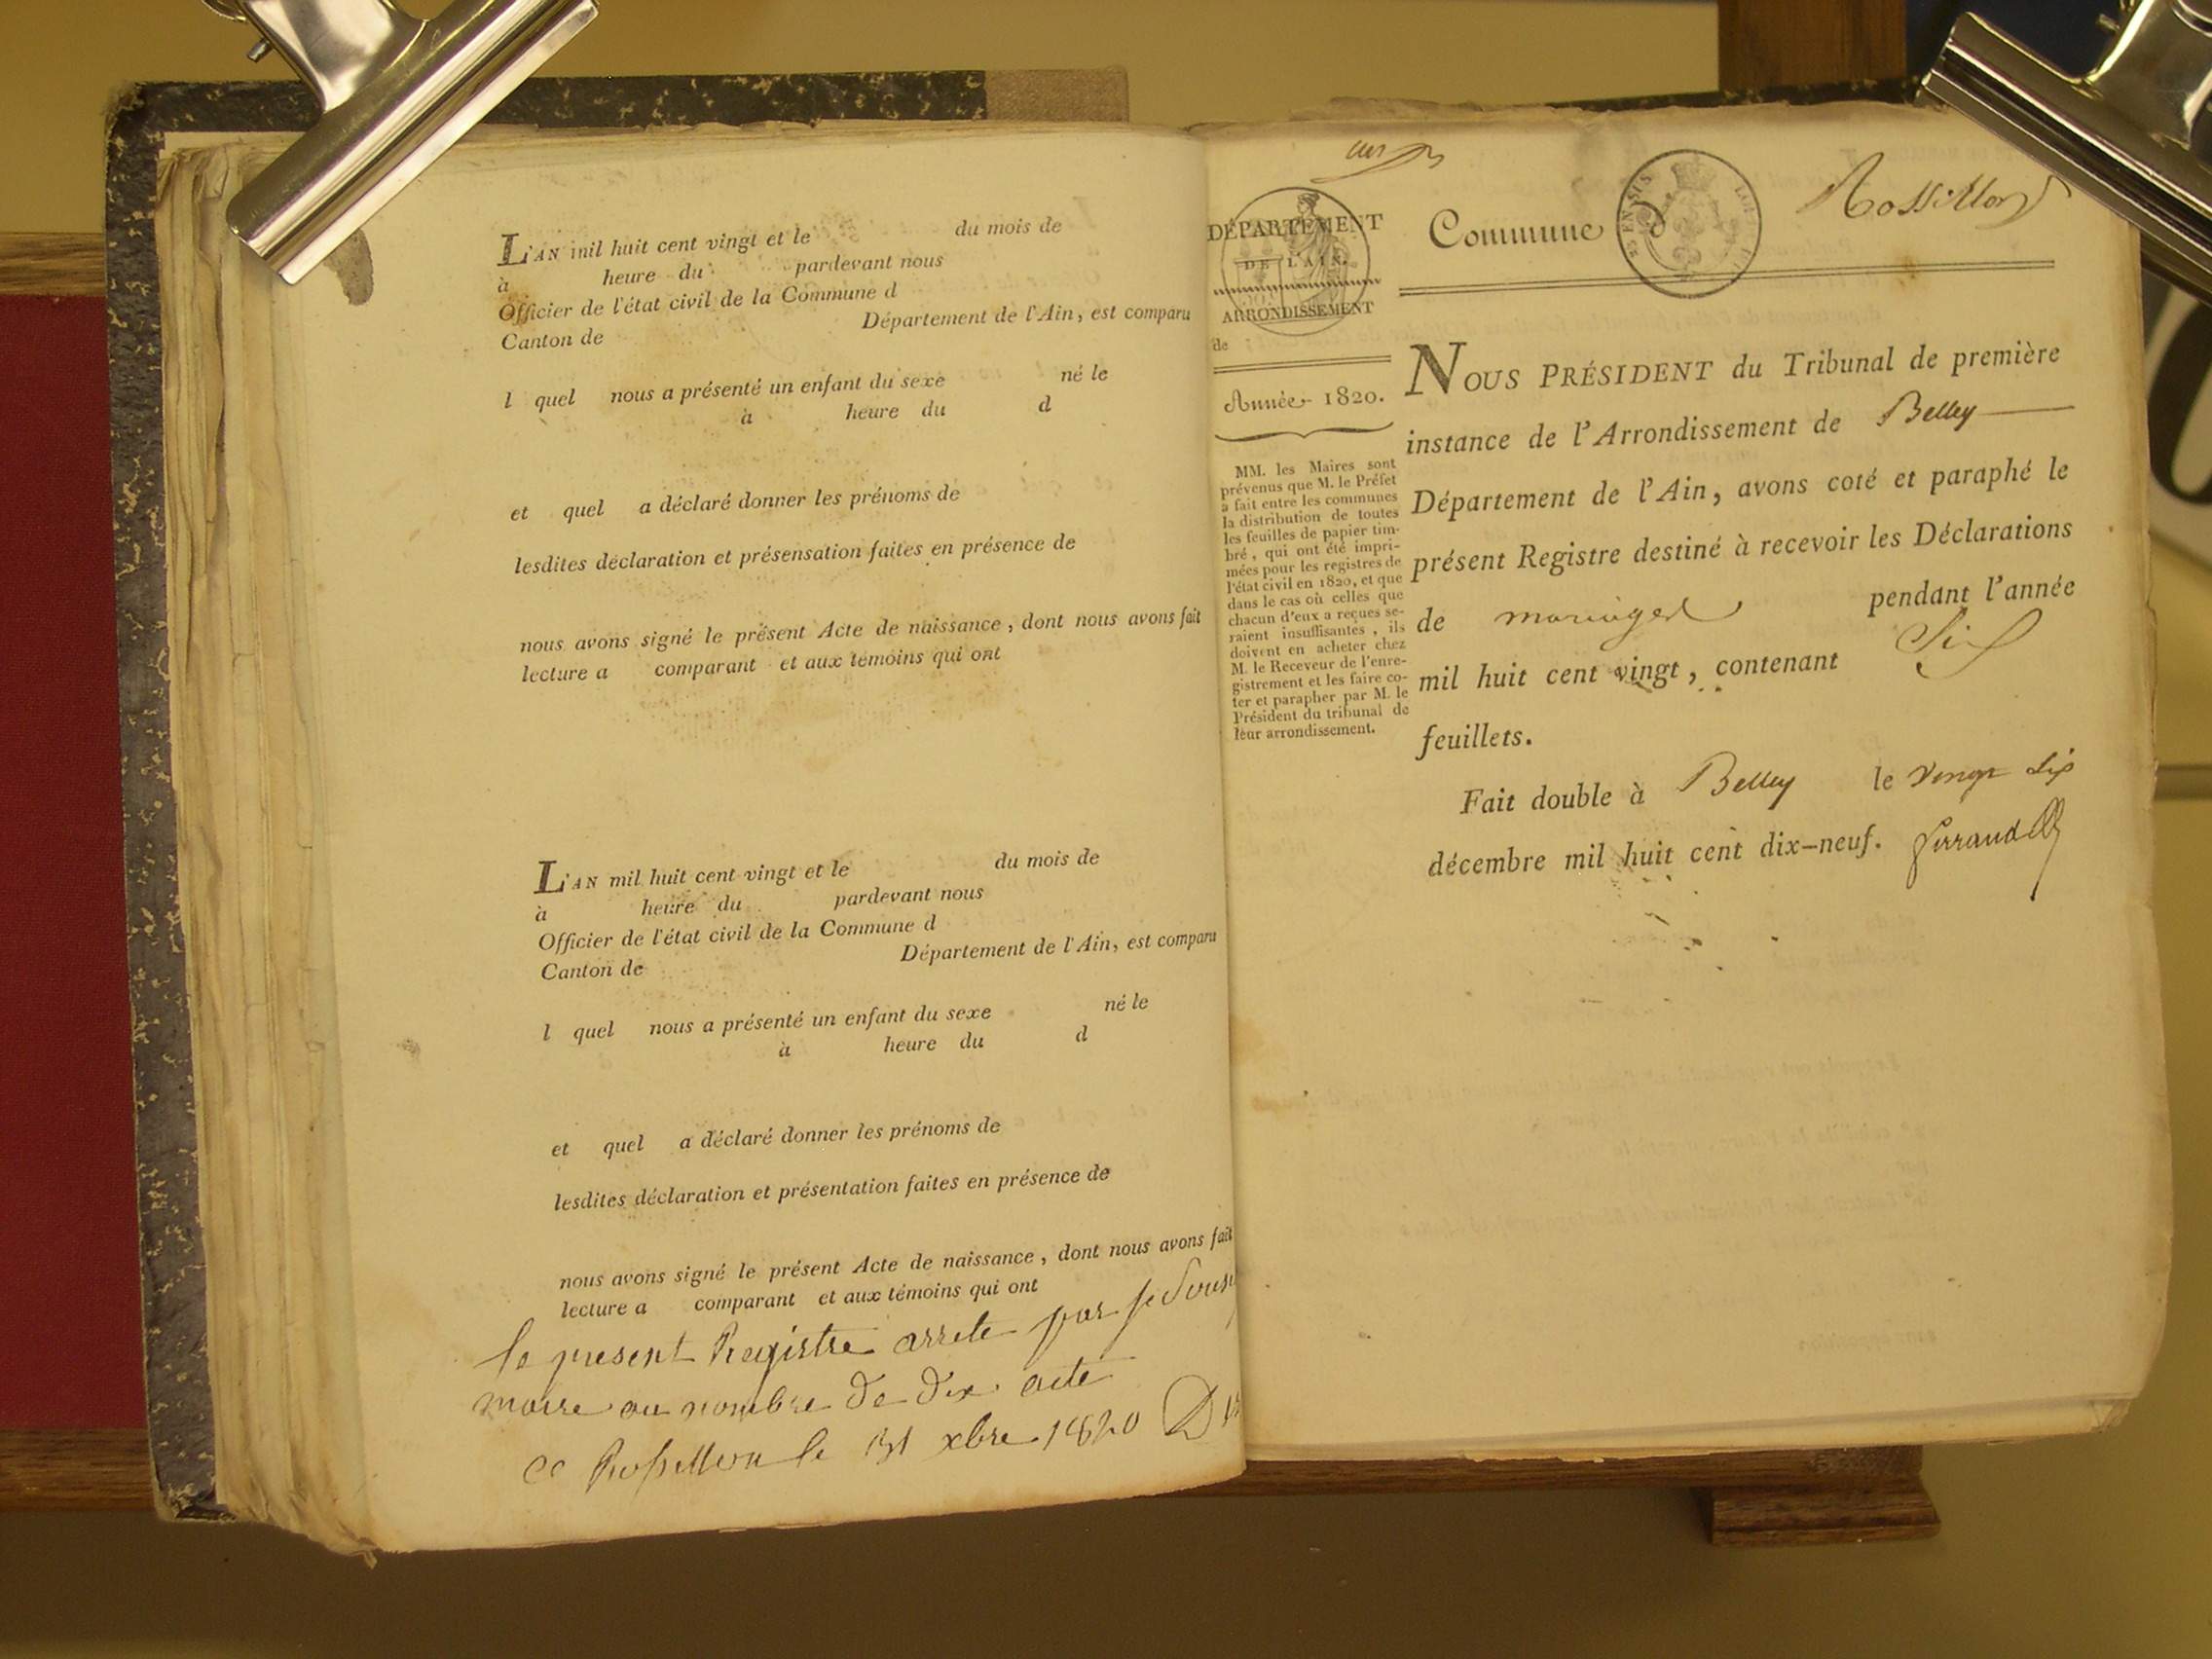 L'AN mil huit cent vingt et le du mois de
à heure du pardevant nous
Officier de l'état civil de la Commune d
Canton de Département de l'Ain, est comparu
l quel nous a présenté un enfant du sexe né le
à heure du d
et quel a déclaré donner les prénoms de
lesdites déclaration et présensation faites en présence de
nous avons signé le présent Acte de naissance, dont nous avons fait
lecture a comparant et aux témoins qui ont
L'AN mil huit cent vingt et le du mois de
à heure du pardevant nous
Officier de l'état civil de la Commune d
Canton de Département de l'Ain, est comparu
l quel nous a présenté un enfant du sexe né le
à heure du d
et quel a déclaré donner les prénoms de
lesdites déclaration et présentation faites en présence de
nous avons signé le présent Acte de naissance, dont nous avons fait
lecture a comparant et aux témoins qui ont
le present Registre arrete par
maire au nombre de dix acte
ce Rossillon le 31 xbre 1820
DÉPARTEMENT
DE L'AIN.
ARRONDISSEMENT
de
Année 1820.
MM. les Maires sont
prévenus que M. le Préfet
a fait entre les communes
la distribution de toutes
les feuilles de papier tim-
bré, qui ont été impri-
mées pour les registres de
l'état civil en 1820, et que
dans le cas où celles que
chacun d'eux a reçues se-
raient insuffisantes, ils
doivent en acheter chez
M. le Receveur de l'enre-
gistrement et les faire co-
ter et parapher par M. le
Président du tribunal de
leur arrondissement.
Commune d Rossillon
NOUS PRÉSIDENT du Tribunal de première
instance de l'Arrondissement de Belley
Département de l'Ain, avons coté et paraphé le
présent Registre destiné à recevoir les Déclarations
de mariages pendant l'année
mil huit cent vingt, contenant Six
feuillets.
Fait double à Belley le vingt six
décembre mil huit cent dix-neuf.